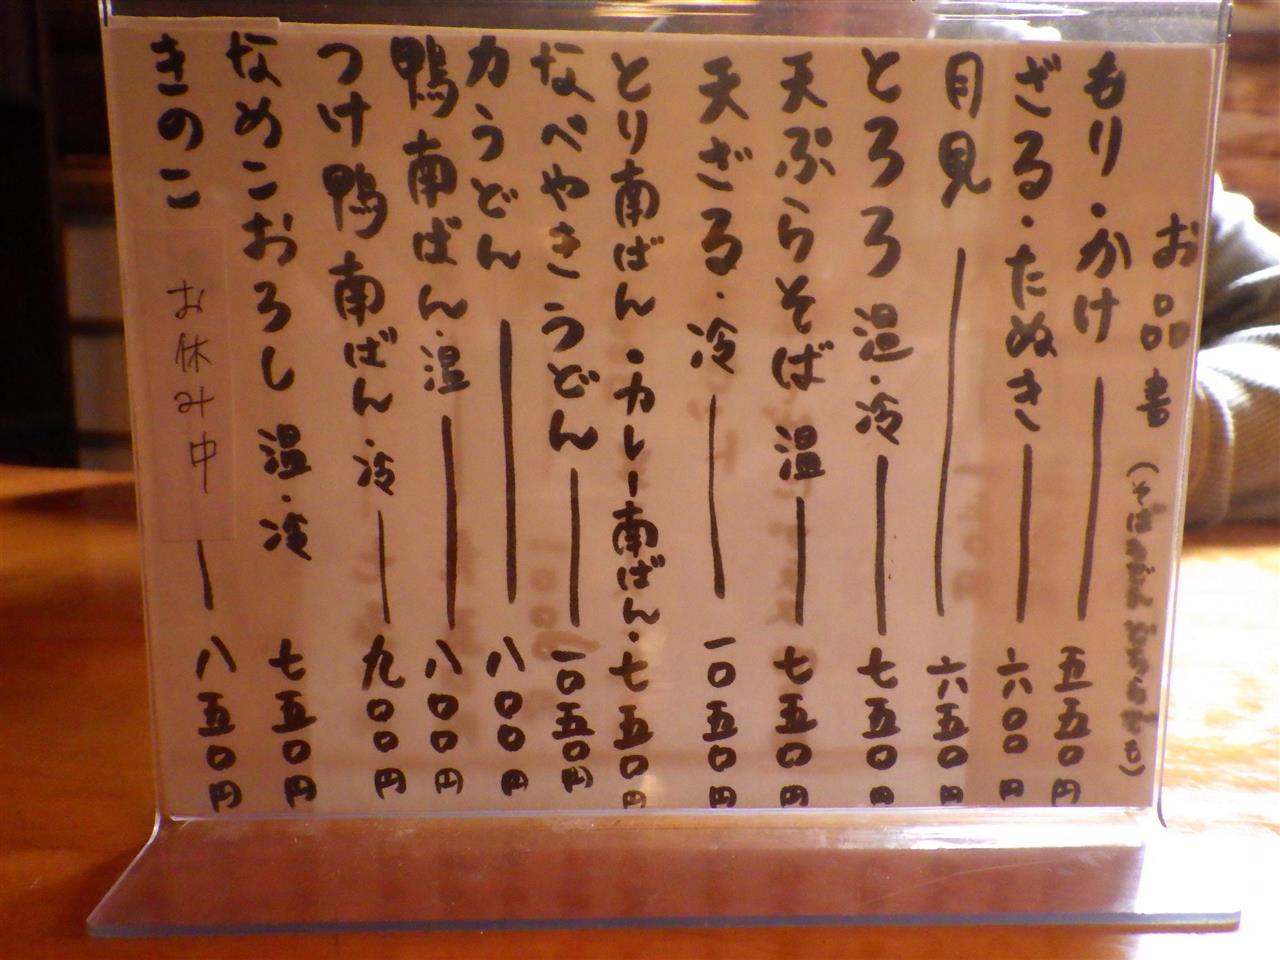 お品書
もり・かけ 五五〇円
ざる・たぬき 六〇〇円
月見 六五〇円
とろろ 温・冷 七五〇円
天ぷらそば 温 七五〇円
天ざる・冷 一〇五〇円
とり南ばん・カレー南ばん・七五〇円
なべやきうどん 一〇五〇円
力うどん 八〇〇円
鴨南ばん・温 八〇〇円
つけ鴨南ばん・冷 九〇〇円
なめこおろし 温・冷 七五〇円
きのこ お休み中 八五〇円